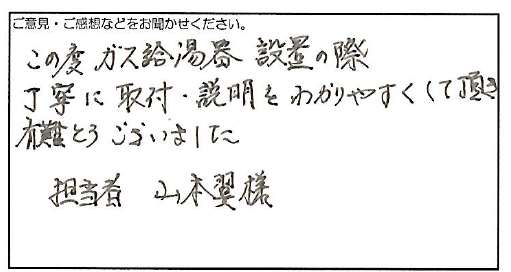 ご意見・ご感想などをお聞かせください。
この度 ガス給湯器 設置の際
丁寧に 取付・説明を わかりやすくして頂き
有難とうございました
担当者 山本翼様